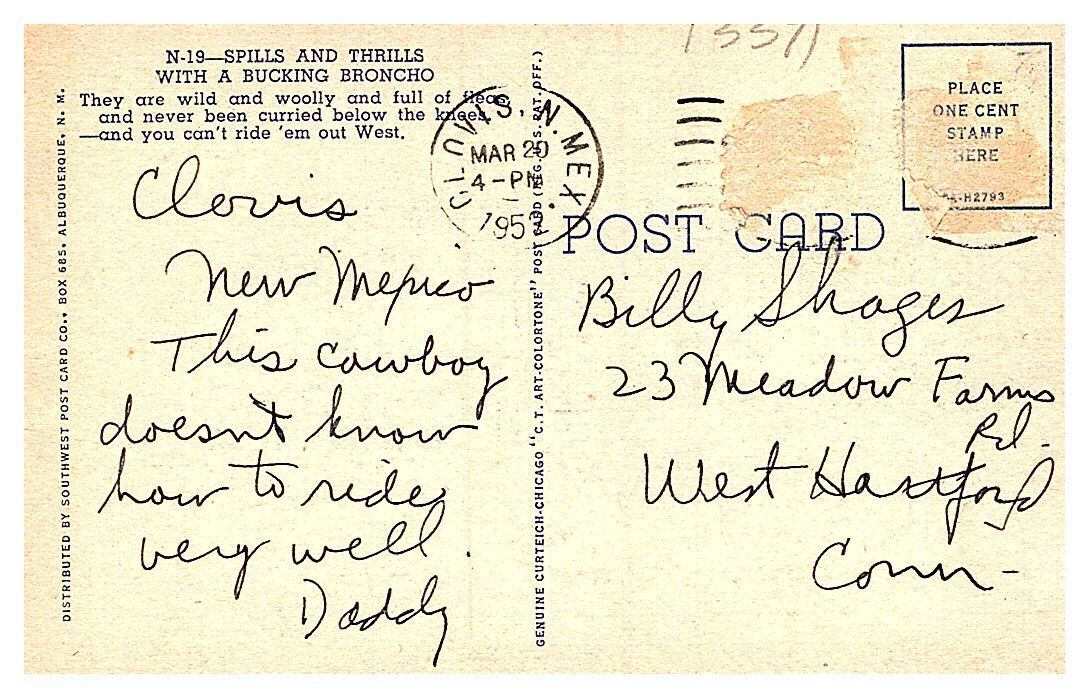 N-19—SPILLS AND THRILLS
WITH A BUCKING BRONCHO
They are wild and woolly and full of fleas,
and never been curried below the knees,
—and you can't ride 'em out West.
Clovis
New Mexico
This cowboy
doesn't know
how to ride
very well.
Daddy
DISTRIBUTED BY SOUTHWEST POST CARD CO., BOX 685, ALBUQUERQUE, N. M.
GENUINE CURTEICH-CHICAGO "C.T. ART-COLORTONE" POST CARD (REG. U.S. PAT. OFF.)
CLOVIS, N. MEX.
MAR 20
4-PM
POST CARD
PLACE
ONE CENT
STAMP
HERE
Billy
23 Meadow Farms
Rd.
West Hartford
Conn-